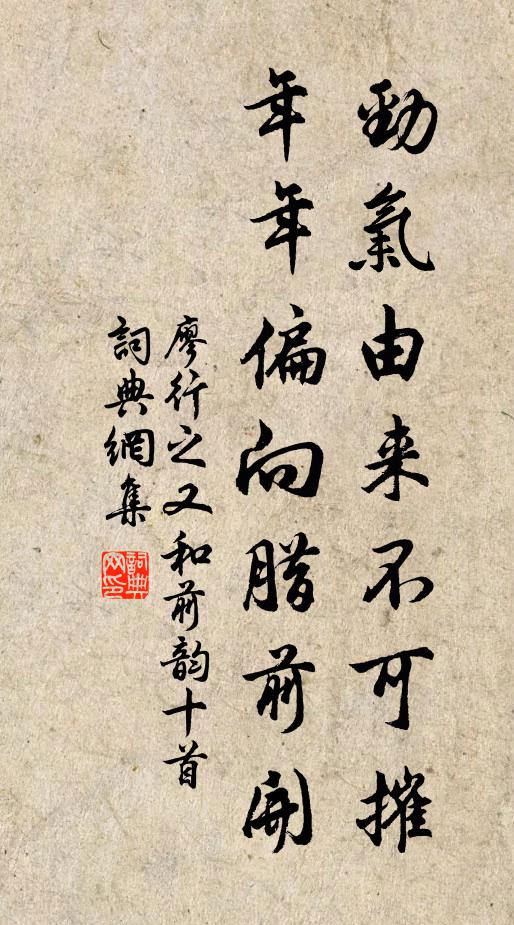 勁氣由来不可摧
年年偏向腊前開
廖行之又和前韵十首
詞典網集
詞典网印